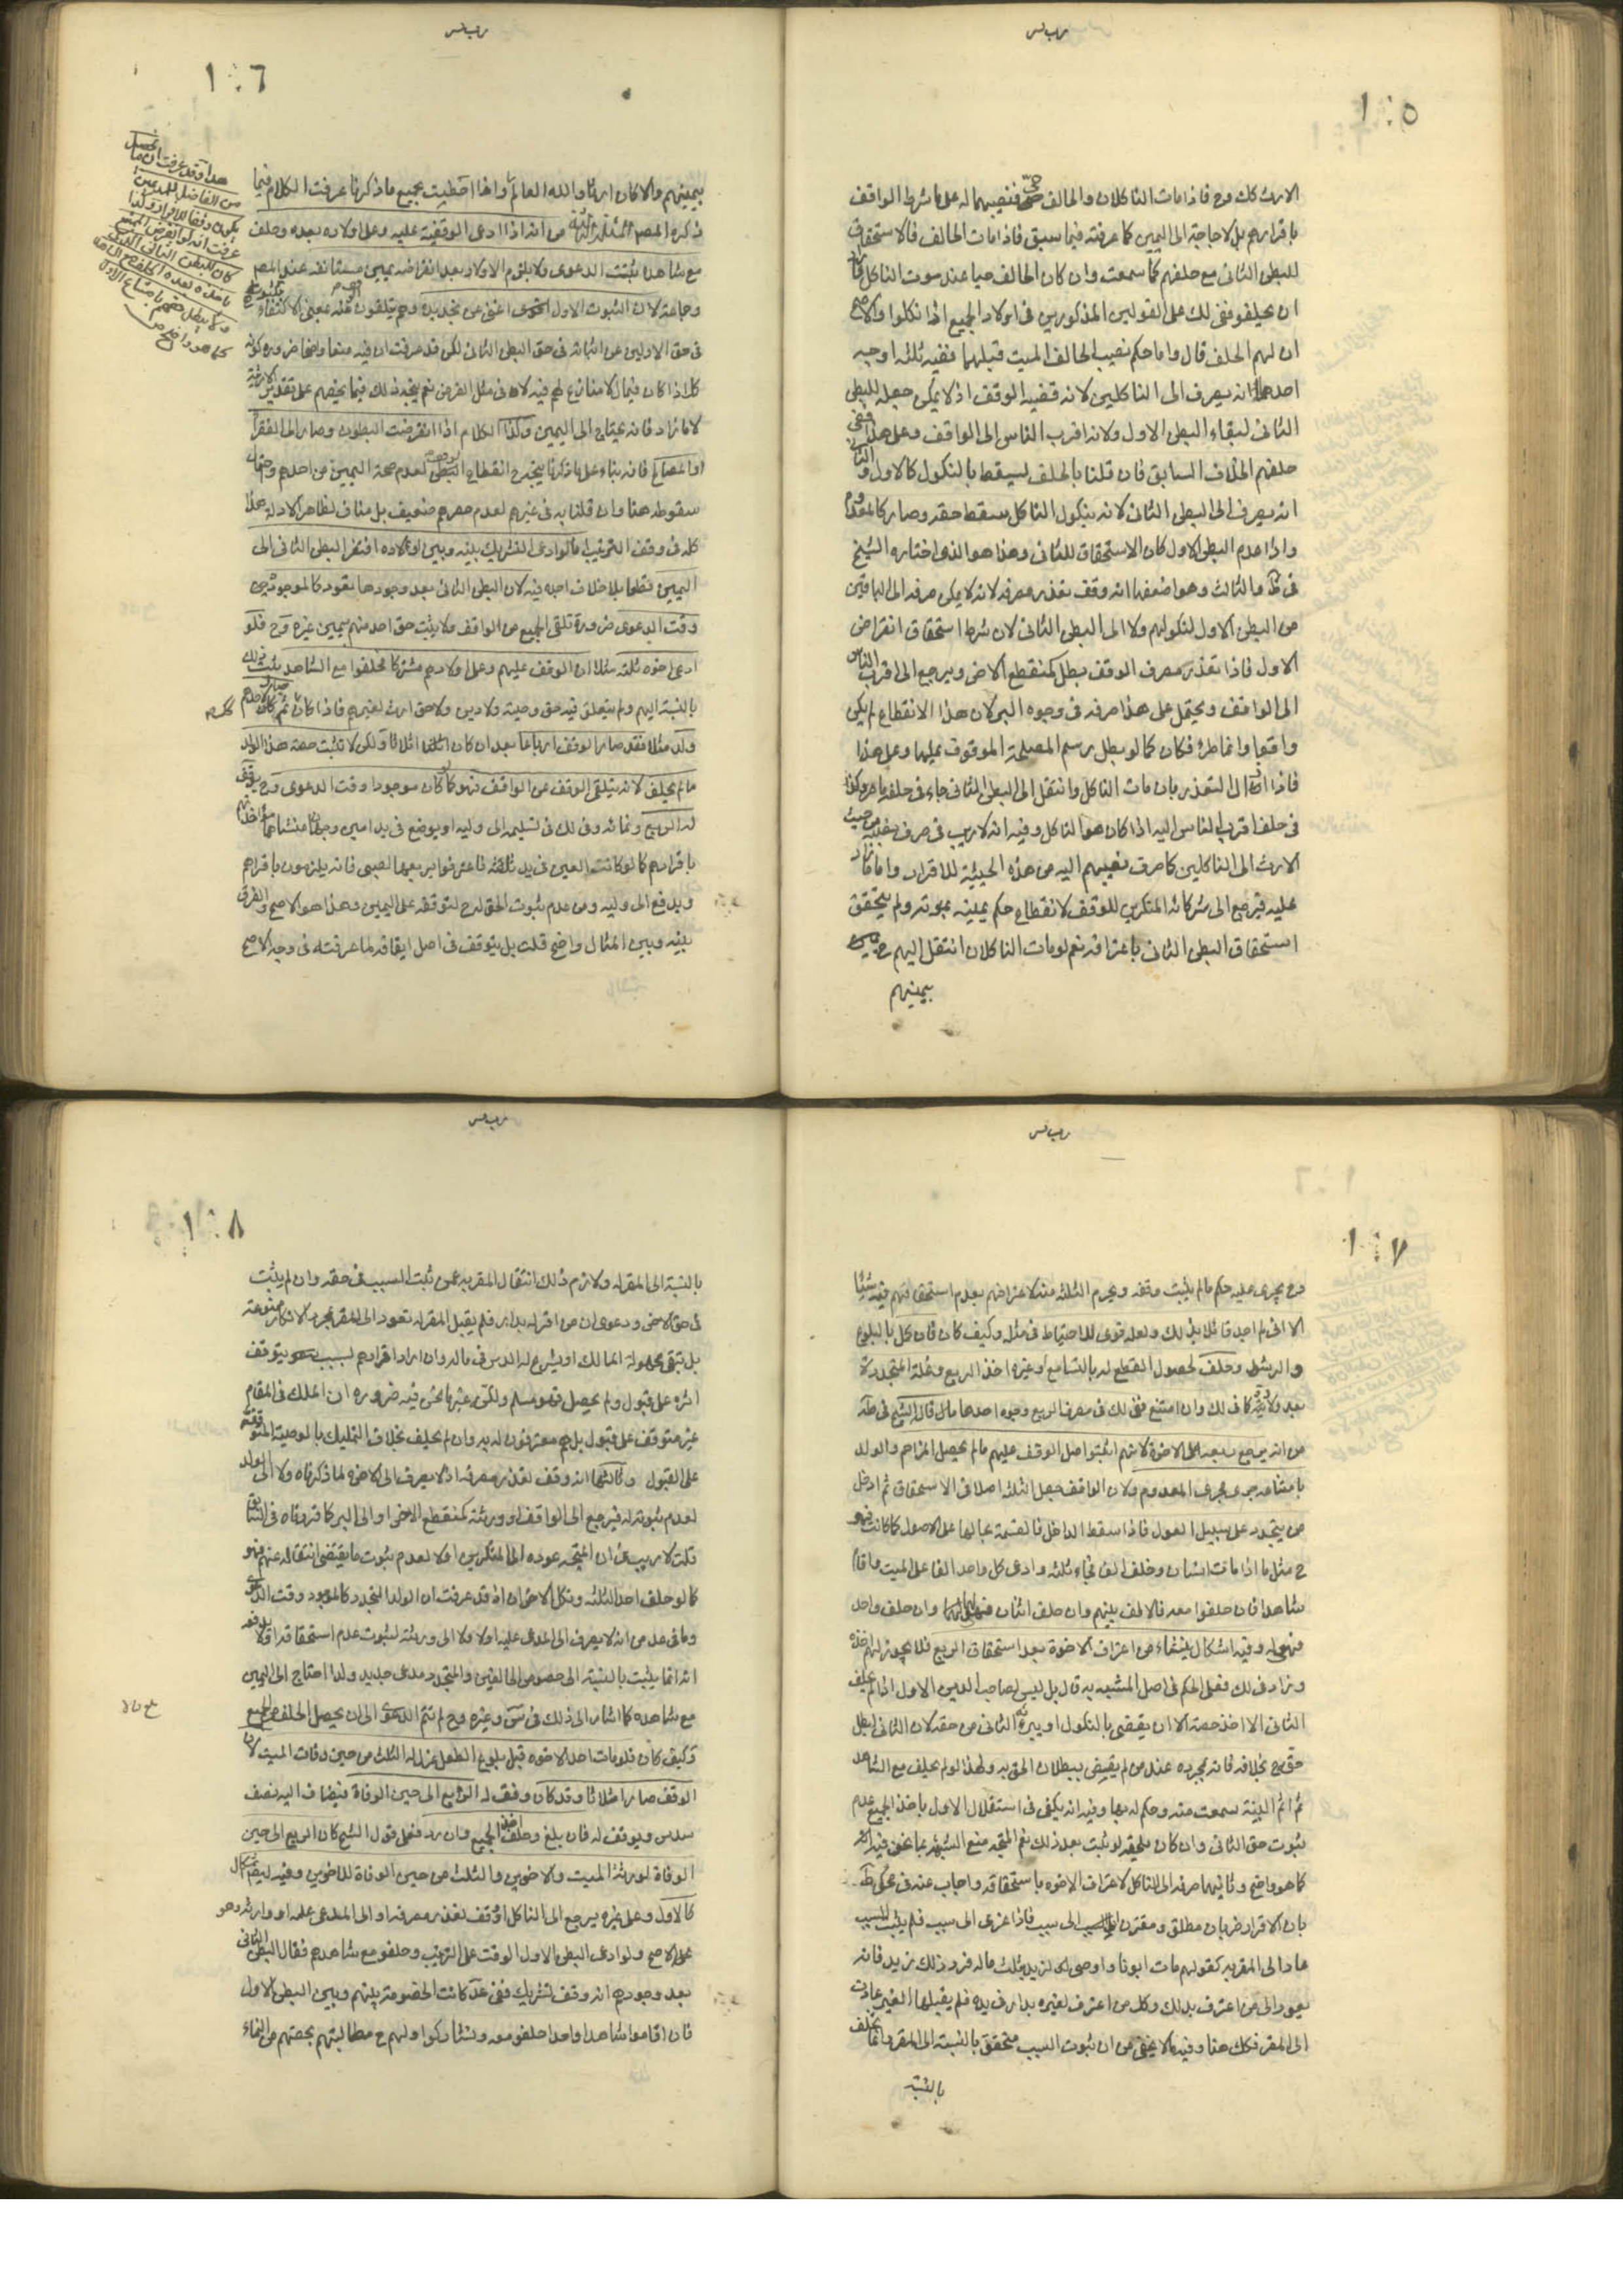 ١٠٥
الارث كك وح فاذا مات الناكلان والحالف حى فنصيبهما له على ما شرط الواقف
باقرارهم بل لا حاجة الى اليمين كما عرفته فيما سبق فاذا مات الحالف فالاستحقاق
للبطن الثانى مع حلفهم كما سمعت وان كان الحالف حيا عند موت الناكل فاراد
ان يحلفو ففى ذلك على القولين المذكورين فى اولاد الجميع اذا نكلوا والاصح
ان لهم الحلف قال واما حكم نصيب الحالف الميت قبلهما ففيه ثلثه اوجه
احدها انه يصرف الى الناكلين لانه قضيه الوقف اذ لا يمكن جعله للبطن
الثانى لبقاء البطن الاول ولانه اقرب الناس الى الواقف وعلى هذا ففى
حلفهم الخلاف السابق فان قلنا بالحلف ليسقط بالنكول كالاول والثانى
انه يصرف الى البطن الثانى لانه بنكول الناكل سقط حقه وصار كالمعدوم
واذا عدم البطن الاول كان الاستحقاق للثانى وهذا هو الذى اختاره الشيخ
فى ط والثالث وهو اضعفها انه وقف تعذر مصرفه لانه لا يمكن صرفه الى الباقين
من البطن الاول لنكولهم ولا الى البطن الثانى لان شرط استحقاق انقراض
الاول فاذا تعذر مصرف الوقف بطل كمنقطع الاخر ويرجع الى اقرب الناس
الى الواقف ويحتمل على هذا صرفه فى وجوه البر لان هذا الانقطاع لم يكن
واقعيا وانما طرء فكان كما لو بطل رسم المصلحة الموقوف عليها وعلى هذا
فاذا زال التعذر بان مات الناكل وانتقل الى البطن الثانى جاء فى حلفه ما مر وكذا
فى حلف اقرب الناس اليه اذا كان هو الناكل وفيه انه لا ريب فى صرف نصيبه من حيث
الارث الى الناكلين كما صرف نصيبهم اليه من هذه الحيثية للاقرار واما ما زاد
عليه فيرجع الى شركائه المنكرين للوقف لانقطاع حكم يمينه بموته ولم يتحقق
استحقاق البطن الثانى باعترافه نعم لو مات الناكلان انتقل اليهم ح
بيمينهم
١٠٦
بيمينهم والا كان ارثا والله العالم واذا احطيت بجميع ما ذكرنا عرفت الكلام فيما
ذكره المصم من انه اذا ادعى الوقفية عليه وعلى اولاده بعده وحلف
مع شاهده ثبتت الدعوى ولا يلزم الاولاد بعد انقراضه يمين مستانفه عند المصم
وجماعة لان الثبوت الاول اغنى عن تجديده وهم يتلقون عنه بمعنى الاكتفاء
فى حق الاولين عن اثباته فى حق البطن الثانى لكن قد عرفت ان فيه منعا واضحا ضرورة كونه
كك اذا كان فيما لا منازع لهم فيه لا فى مثل الفرض نعم يتجه ذلك فيما يخصهم على تقدير الارثية
لا ما زاد فانه يحتاج الى اليمين وكذا الكلام اذا انقرضت البطون وصار الى الفقراء
او المصالح فانه بناء على ما ذكرنا يتخرج انقطاع لعدم صحة اليمين من احدهم واحتمال
سقوطه هنا وان قلنا به فى غيرهم لعدم حصرهم ضعيف بل مناف لظاهر الادلة هذا
كله فى وقف الترتيب اما لو ادعى التشريك بينه وبين اولاده افتقر البطن الثانى الى
اليمين قطعا بلا خلاف اجده فيه لان البطن الثانى بعد وجودها تعود كالموجود حين
وقت الدعوى ضرورة تلقى الجميع من الواقف ولا يثبت حق احد منهم بيمين غيره وح فلو
ادعى اخوه ثلثه مثلا ان الوقف عليهم وعلى اولادهم مشتركا فحلفوا مع الشاهد ثبت ذلك
بالنسبة اليهم ولم يتعلق فيه حق وصية ولا دين ولا حق ارث لغيرهم فاذا كان ثم صار لاحدهم
ولد مثلا فقد صار الوقف ارباعا بعد ان كان اثلاثا ولكن لا تثبت حصة هذا الولد
ما لم يحلف لانه يتلقى الوقف عن الواقف فهو كما لو كان موجودا وقت الدعوى وح يوقف
له الربع ونمائه وفى ذلك فى تسليمه الى وليه او يوضع فى يد امين وجهان منشاهما
باقرارهم كما لو كانت العين فى يد ثلثه فاعترفوا بربعها لصبى فانه يلزمون باقرارهم
ويدفع الى وليه ومن عدم ثبوت الحق له ح لتوقفه على اليمين وهذا هو الاصح والفرق
بينه وبين المثال واضح قلت بل يتوقف فى اصل ايقافه لما عرفته فى وجه الاصح
هذا وقد عرفت ان ما يحصل
من الفاضل للمدعين
يكون وقفا للاقرار ولذا
عرفت انه لو انقرض الممتنع
كان للبطن الثانى الذى
ياخذه بعده الحلف مع الشاهد
ولا يبطل حقهم بامتناع الاول
كما هو واضح ص
١٠٧
وح يجرى عليه حكم ما لم يثبت وقفه ويحرم الثلثه منه لاعترافهم بعدم استحقاقهم فيه شيئا
الا انى لم اجد قائلا بذلك ولعله قوى للاحتياط فى مثله وكيف كان فان كل بالبلوغ
والرشد وحلف لحصول القطع له بالتسامع او غيره اخذ الربع وغلته المتجددة
بعد ولادته كان ذلك وان امتنع ففى ذلك فى مصرف الربع وجوه احدها ما قال الشيخ فى ط
من انه يرجع ربعه على الاخوة لانهم اثبتوا اصل الوقف عليهم ما لم يحصل المزاحم والولد
بامتناعه جرى مجرى المعدوم ولان الواقف جعل الثلثه اصلا فى الاستحقاق ثم ادخل
من يتجدد على سبيل العول فاذا سقط الداخل فالقسمة بحالها على الاصول كما كانت فهو
ح مثل ما اذا مات انسان وخلف الفا فجاء ثلثه وادعى كل واحد الفا على الميت واقام
شاهدا فان حلفوا معه فالالف بينهم وان حلف اثنان فهى لهما وان حلف واحد
فهى له وفيه اشكال ينشاء من اعتراف الاخوة بعدم استحقاق الربع فلا يجوز لهم اخذه
وزاد فى ذلك فعلى الحكم فى اصل المشبه به قال بل ليس لصاحب الدين الاول اذا لم يحلف
الثانى الا اخذ حصته الا ان يقضى بالنكول او يبرئه الثانى من حقه لان الثانى ابطل
حقه ح بخلافه فانه بمجرده عند من لم يقضى ببطلان الحق به ولهذا لو لم يحلف مع الشاهد
ثم اتم البينة سمعت منه وحكم له بها وفيه انه يكفى فى استقلال الاول باخذ الجميع عدم
ثبوت حق الثانى وان كان ملحقه لو ثبت بعد ذلك نعم المتجه منع الشبهه بما نحن فيه
كما هو واضح وثانيها صرفه الى الناكل لاعتراف الاخوه باستحقاقه واجاب عنه فى محكى ط
بان الاقرار ضربان مطلق ومقترن الى سبب فاذا عزى الى سبب فلم يثبت السبب
عاد الى المقر به كقولهم مات ابونا واوصى لزيد بثلث ماله فرد ذلك زيد فانه
يعود الى من اعترف بذلك وكل من اعترف لغيره بدار فى يده فلم يقبلها الغير عادت
الى المقر فكك هنا وفيه ما لا يخفى من ان ثبوت السبب متحقق بالنسبة الى المقر وانما تخلف
بالنسبة
١٠٨
بالنسبة الى المقر له ولازم ذلك انتقال المقر به عمن ثبت السبب فى حقه وان لم يثبت
فى حق الاخر ودعوى ان من اقر له بدار فلم يقبل المقر له تعود الى المقر بمجرد الانكار ممنوعة
بل تبقى مجهولة المالك او يشرع له الدس فى ماله وان اراد اقرارهم لسبب يتوقف
اثره على قبول ولم يحصل فهو مسلم ولكن غير ما نحن فيه ضروره ان الملك فى المقام
غير متوقف على قبول بل هم معترفون له به وان لم يحلف بخلاف التمليك بالوصية المتوقفه
على القبول وثالثها انه وقف تعذر مصرفه اذ لا يصرف الى الاخوه لما ذكرناه ولا الى الولد
لعدم ثبوته له فيرجع الى الواقف او ورثته كمنقطع الاخر او الى البر كما قررناه فى السابق
قلت لا ريب فى ان المتجه عوده الى المنكرين اولا لعدم ثبوت ما يقتضى انتقاله عنهم فهو
كما لو حلف احد الثلثه ونكل الاخران اذ قد عرفت ان الولد المتجدد كالموجود وقت الدعوى
وما فى عد من انه لا يصرف الى المدعى عليه اولا ولا الى ورثته لثبوت عدم استحقاقه اولا يدفعه
انه انما يثبت بالنسبة الى خصوص الحالفين والمتجدد مدعى جديد ولذا احتاج الى اليمين
مع شاهده كما اشار الى ذلك فى س وغيره وح لم تتم الدعوى الى ان يحصل الحلف من الجميع
وكيف كان فلو مات احد الاخوه قبل بلوغ الطفل عزل له الثلث من حين وفات الميت لان
الوقف صار اثلاثا وقد كان وقف له الربع الى حين الوفاة فيضاف اليه نصف
سدس ويوقف له فان بلغ وحلف اخذ الجميع وان رد فعلى قول الشيخ كان الربع الى حين
الوفاة لورثة الميت والاخوين والثلث من حين الوفاة للاخوين وفيه ايضا اشكال
كالاول وعلى غيره يرجع الى الناكل او وقف تعذر مصرفه او الى المدعى عليه او وارثه وهو
على الاصح ولو ادعى البطن الاول الوقف على الترتيب وحلفو مع شاهدهم فقال البطن الثانى
بعد وجودهم انه وقف تشريك ففى عد كانت الخصومة بينهم وبين البطن الاول
فان اقاموا شاهدا واحدا حلفو معه وتشاركوا ولهم ح مطالبتهم بحصتهم من النماء